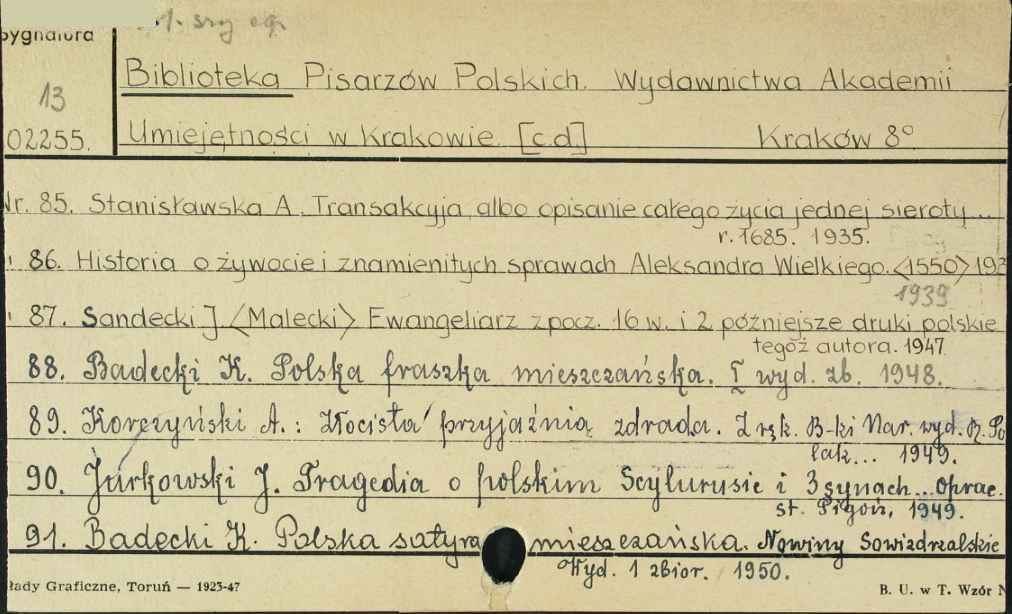 1. szy egz.
Sygnatura
13
02255.
Biblioteka Pisarzów Polskich. Wydawnictwa Akademii
Umiejętności w Krakowie. [c.d.] Kraków 8°
Nr. 85. Stanisławska A. Transakcyja albo opisanie całego życia jednej sieroty...
r. 1685. 1935.
86. Historia o żywocie i znamienitych sprawach Aleksandra Wielkiego. <1550>
1939
87. Sandecki J <Malecki> Ewangeliarz z pocz. 16 w. i 2 późniejsze druki polskie
tegoż autora. 1947
88. Badecki K. Polska fraszka mieszczańska. I wyd. zb. 1948.
89. Korczyński A.: Złocista przyjaźnią zdrada. Z ręk. B-ki Nar. wyd. R. Po
lak... 1949.
90. Jurkowski J. Tragedia o polskim Scylurusie i 3 synach... oprac.
St. Pigoń, 1949.
91. Badecki K. Polska satyra mieszczańska. Nowiny Sowizdrzalskie
Wyd. 1 zbior. 1950.
łady Graficzne, Toruń — 1923-47 B. U. w T. Wzór N